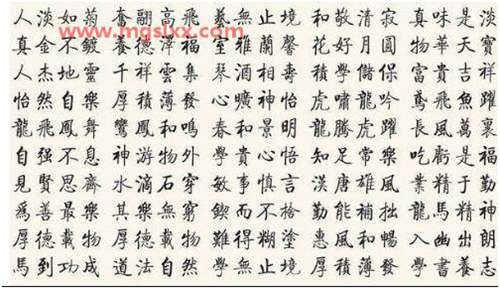 人淡如菊 奮翮高飛 藝無止境 和敬清寂 真味是淡
www.mgslxx.com
真金不鍍 養德 福 室雅蘭馨 花好月圓 物華天寶
人杰地靈 千祥雲集 琴酒相壽 積學儲 富貴吉祥
怡然自樂 厚積薄發 心曠神怡 虎嘯龍吟 鳶飛魚躍
龍飛鳳舞 鸞鳳和鳴 春和景明 龍騰虎躍 長風萬裏
自强不息 神游物外 學貴心悟 知足常樂 吃虧是福
見賢思齊 水滴石穿 敏事慎言 漢唐雄風 業精于勤
爲善最樂 其樂無窮 鍥而不捨 勤能補拙 龍馬精神
厚德載物 厚德載物 難得糊塗 惠風和暢 入幽出朗
馬到功成 道法自然 學無止境 厚積薄發 學書養志